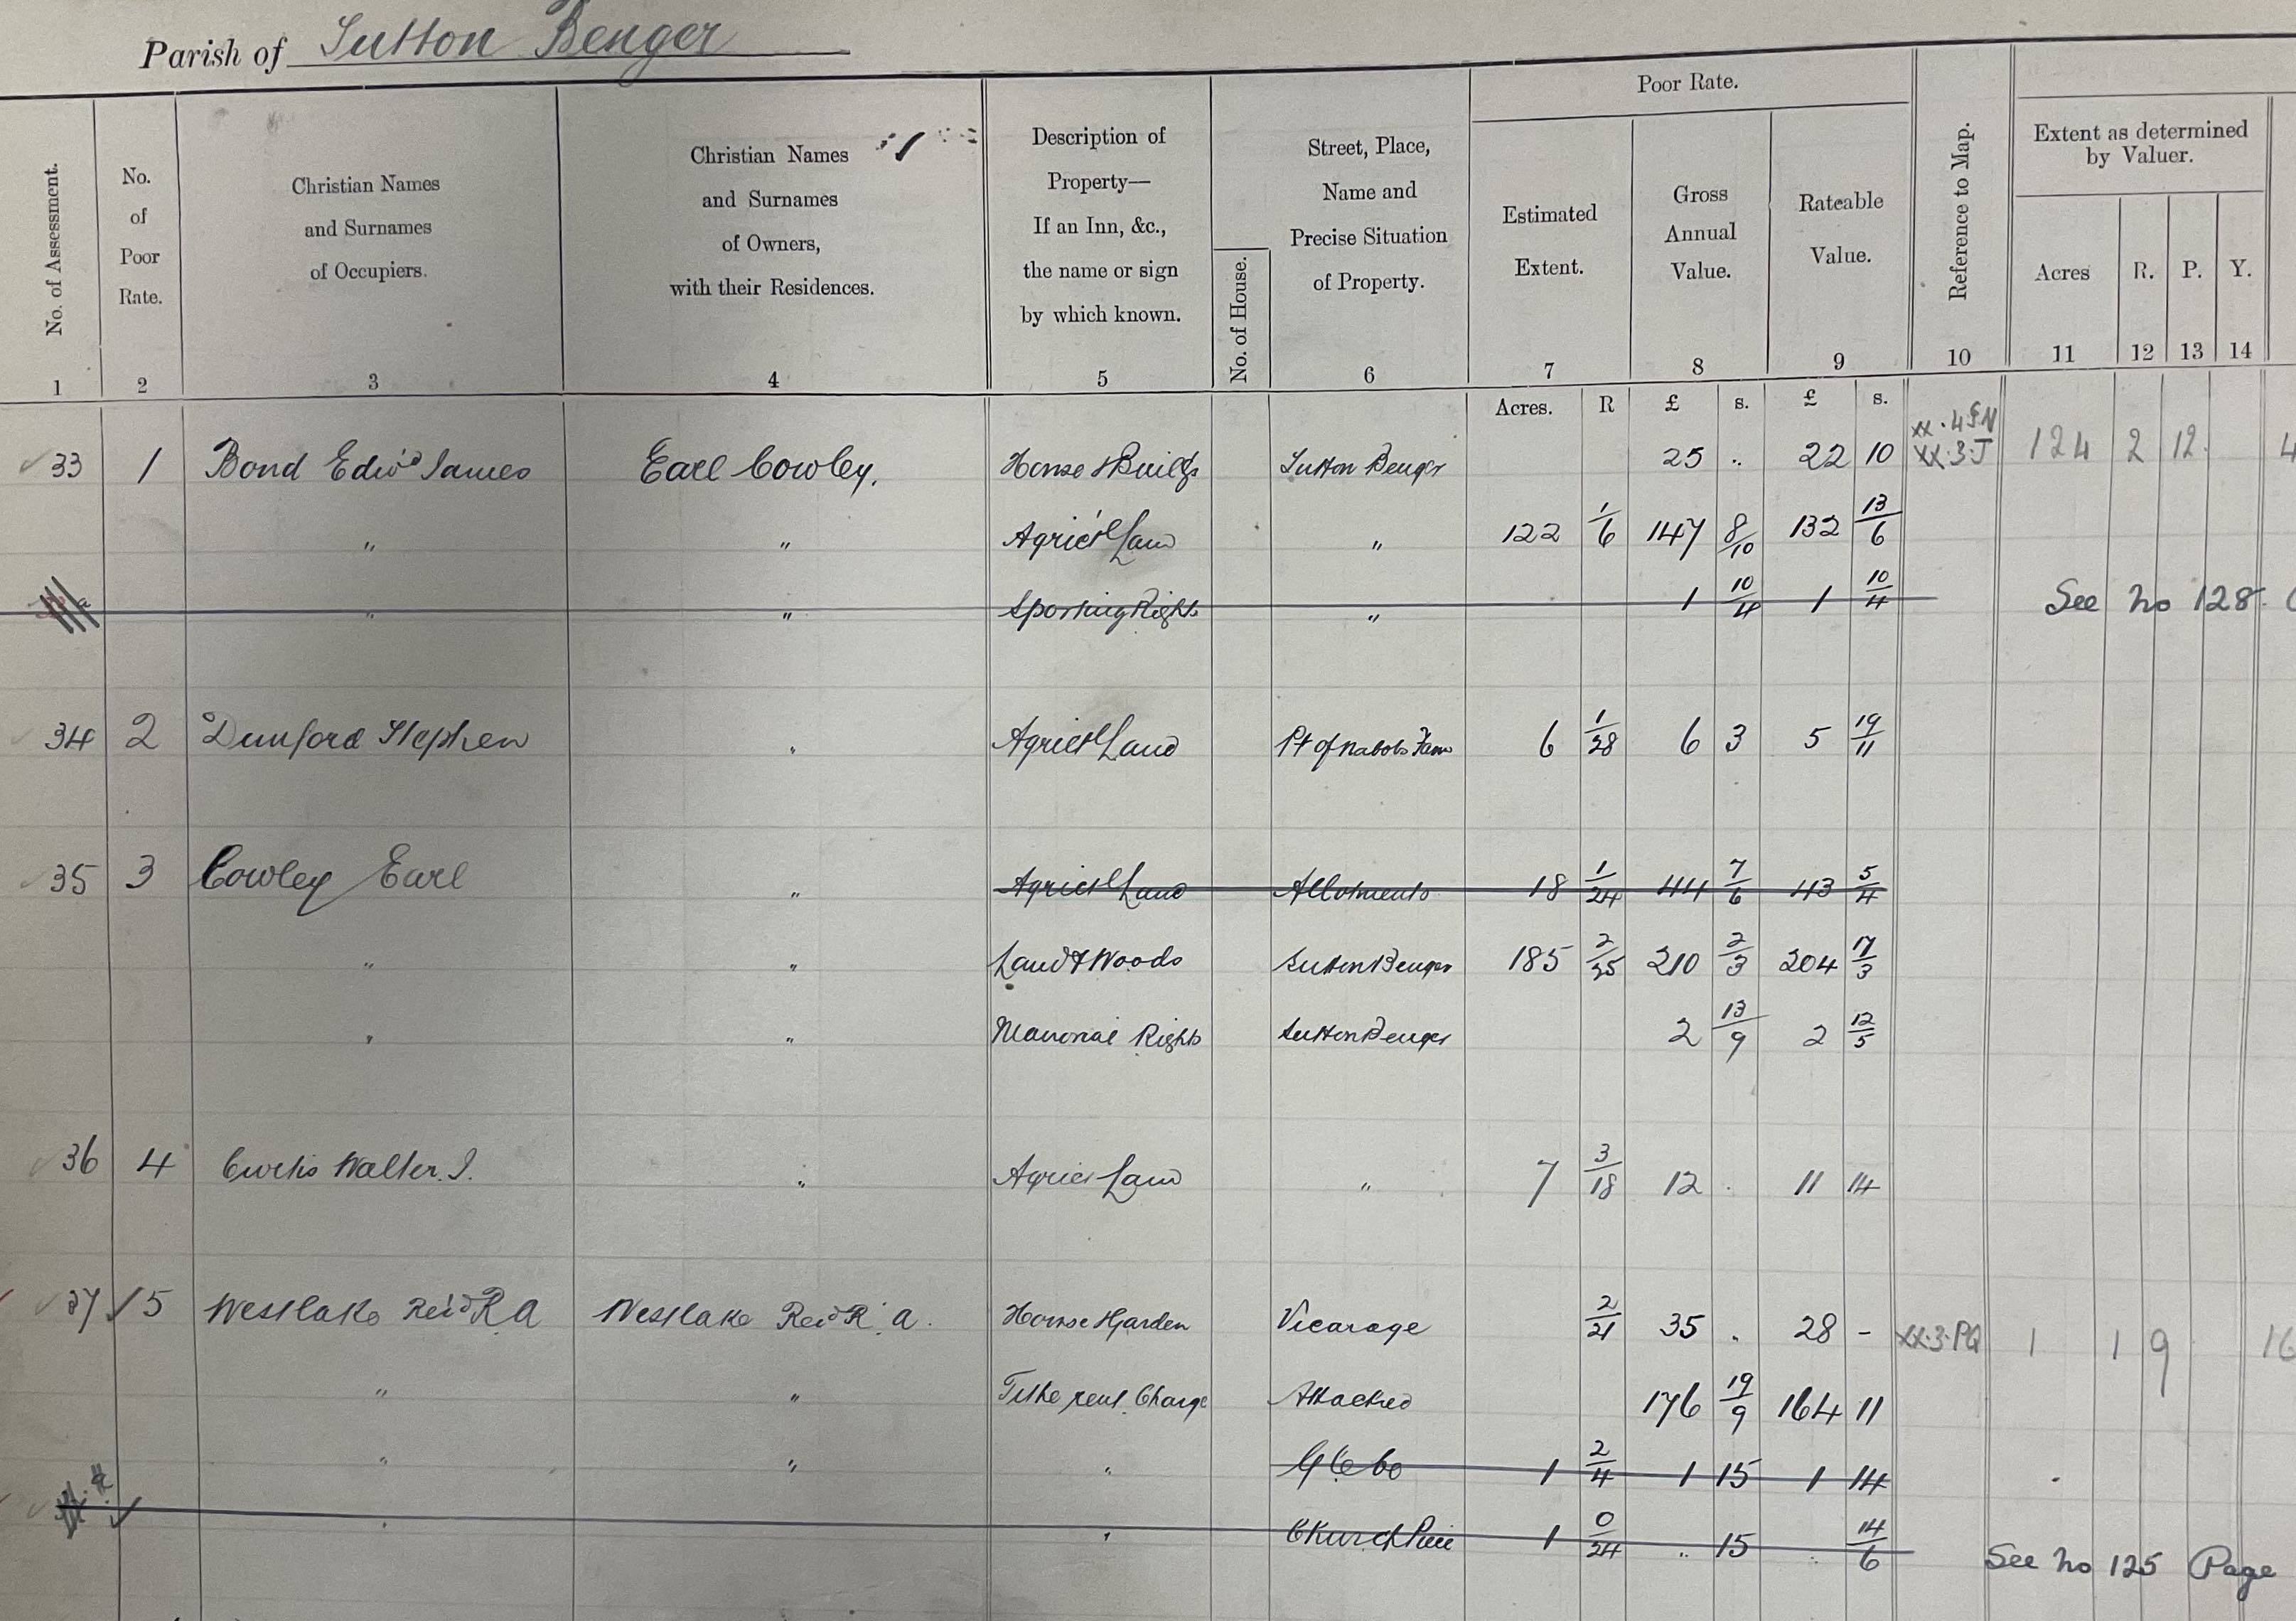 Parish of Sutton Benger
No. of Assessment. No. of Poor Rate. Christian Names and Surnames of Occupiers. Christian Names and Surnames of Owners, with their Residences. Description of Property— If an Inn, &c., the name or sign by which known. No. of House. Street, Place, Name and Precise Situation of Property. Poor Rate. Estimated Extent. Gross Annual Value. Rateable Value. Reference to Map. Extent as determined by Valuer. Acres R. P. Y.
1 2 3 4 5 6 7 8 9 10 11 12 13 14
Acres. R £ s. £ s.
33 1 Bond Edwd James Earl Cowley. House & Buildgs Sutton Benger 25 .. 22 10 xx.4.FN xx.3.J 124 2 12 4
" " Agricl Land " 122 1/6 147 8/10 132 13/6
" " Sporting Rights " 1 10/4 1 10/4 See no 128
34 2 Dunford Stephen " Agricl Land Pt of Nabobs Farm 6 1/28 6 3 5 19/11
35 3 Cowley Earl " Agricl Land Allotments 18 1/24 44 7/6 43 5/4
" " Land & Woods Sutton Benger 185 2/25 210 2/3 204 17/3
" " Manorial Rights Sutton Benger 2 13/9 2 12/5
36 4 Curtis Walter J. " Agricl Land " 7 3/18 12 . 11 14
37 5 Westlake Revd R A Westlake Revd R. A. House & Garden Vicarage 2/21 35 . 28 - xx.3.PQ 1 1 9 16
" " Tithe rent Charge Attached 176 19/9 164 11
" " " Glebe 1 2/4 1 15 1 14
" " Church Piece 1 0/24 .. 15 .. 14/6 See no 125 Page